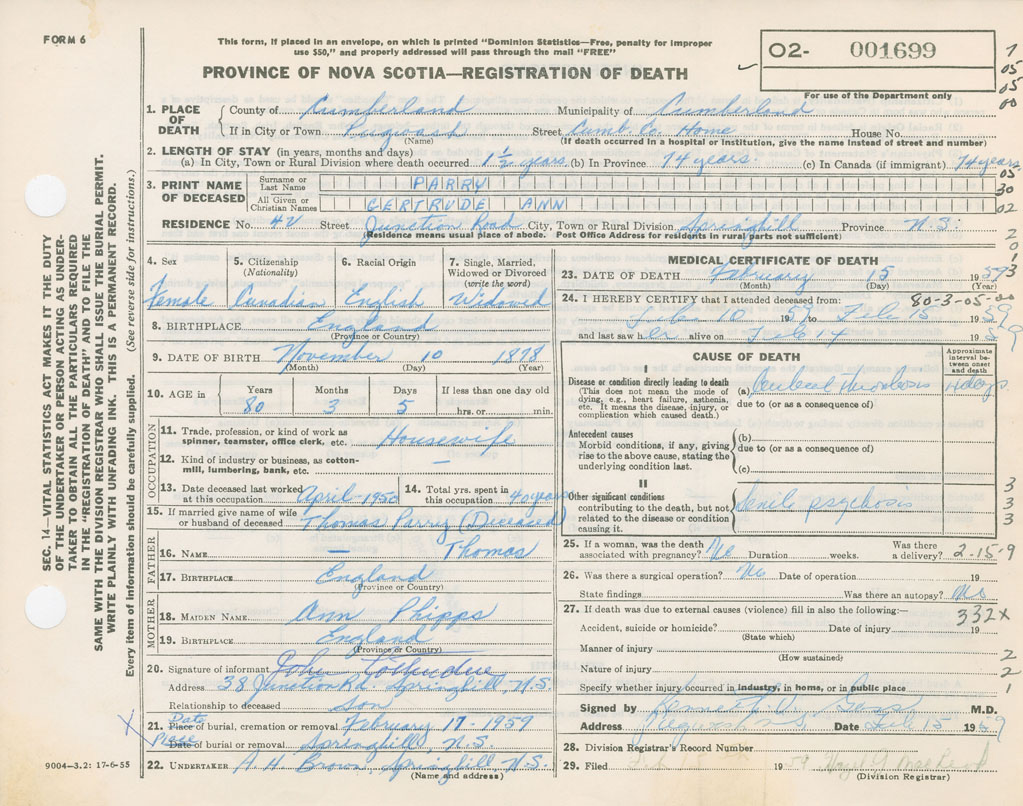 FORM 6
This form, if placed in an envelope, on which is printed "Dominion Statistics—Free, penalty for improper
use $50," and properly addressed will pass through the mail "FREE"
PROVINCE OF NOVA SCOTIA—REGISTRATION OF DEATH
O2- 001699
For use of the Department only
7
05
05
00
SEC. 14—VITAL STATISTICS ACT MAKES IT THE DUTY
OF THE UNDERTAKER OR PERSON ACTING AS UNDER-
TAKER TO OBTAIN ALL THE PARTICULARS REQUIRED
IN THE "REGISTRATION OF DEATH" AND TO FILE THE
SAME WITH THE DIVISION REGISTRAR WHO SHALL ISSUE THE BURIAL PERMIT.
WRITE PLAINLY WITH UNFADING INK. THIS IS A PERMANENT RECORD.
Every item of information should be carefully supplied. (See reverse side for instructions.)
1. PLACE OF DEATH County of Cumberland Municipality of Cumberland
If in City or Town Pugwash Street Cumb. Co. Home House No.
(Name) (If death occurred in a hospital or institution, give the name instead of street and number)
2. LENGTH OF STAY (in years, months and days)
(a) In City, Town or Rural Division where death occurred 1 1/2 years (b) In Province 74 years. (c) In Canada (if immigrant) 74 years
05
3. PRINT NAME OF DECEASED Surname or Last Name PARRY
30
All Given or Christian Names GERTRUDE ANN
02
RESIDENCE No. 40 Street Junction Road City, Town or Rural Division Springhill Province N.S.
(Residence means usual place of abode. Post Office Address for residents in rural parts not sufficient)
2
0
1
3
4. Sex 5. Citizenship (Nationality) 6. Racial Origin 7. Single, Married, Widowed or Divorced (write the word)
Female Canadian English Widowed
8. BIRTHPLACE England
(Province or Country)
9. DATE OF BIRTH November 10 1878
(Month) (Day) (Year)
10. AGE in Years Months Days If less than one day old
80 3 5 hrs. or min.
OCCUPATION
11. Trade, profession, or kind of work as
spinner, teamster, office clerk, etc. Housewife
12. Kind of industry or business, as cotton-
mill, lumbering, bank, etc. —
13. Date deceased last worked
at this occupation April-1950
14. Total yrs. spent in
this occupation 40 years
15. If married give name of wife
or husband of deceased Thomas Parry (Deceased)
FATHER
16. NAME — Thomas
17. BIRTHPLACE England
(Province or Country)
MOTHER
18. MAIDEN NAME Ann Phipps
19. BIRTHPLACE England
(Province or Country)
20. Signature of informant John
Address 38 Junction Rd. Springhill N.S.
Relationship to deceased Son
X
21. Date
Place of burial, cremation or removal February 17-1959
Place
Date of burial or removal Springhill, N.S.
22. UNDERTAKER A H Brown, Springhill N.S.
(Name and address)
9004-3.2: 17-6-55
MEDICAL CERTIFICATE OF DEATH
23. DATE OF DEATH February 15 1959
(Month) (Day) (Year)
24. I HEREBY CERTIFY that I attended deceased from: 80-3-05-00
Feb 10 1959 to Feb 15 1959
and last saw h er alive on Feb 14 1959
9
CAUSE OF DEATH
Approximate interval between onset and death
I
Disease or condition directly leading to death
(This does not mean the mode of
dying, e.g., heart failure, asthenia,
etc. It means the disease, injury, or
complication which caused death.)
(a) Cerebral thrombosis 4 days
due to (or as a consequence of)
Antecedent causes
Morbid conditions, if any, giving
rise to the above cause, stating the
underlying condition last.
(b)
due to (or as a consequence of)
(c)
II
Other significant conditions
contributing to the death, but not
related to the disease or condition
causing it.
Senile psychosis
3
3
3
25. If a woman, was the death
associated with pregnancy? No Duration weeks. Was there
a delivery? 2-15-9
26. Was there a surgical operation? No Date of operation 19
State findings Was there an autopsy? No
27. If death was due to external causes (violence) fill in also the following:— 332X
Accident, suicide or homicide? Date of injury 19
(State which)
Manner of injury 2
(How sustained)
Nature of injury 2
Specify whether injury occurred in industry, in home, or in public place 1
Signed by M.D.
Address Pugwash N.S. Date Feb 15 1959
28. Division Registrar's Record Number
29. Filed Feb 18 1959
(Division Registrar)